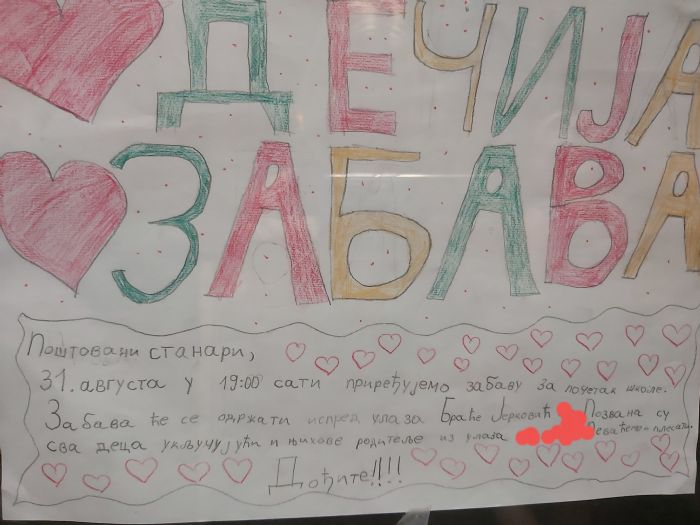 ДЕЧИЈА
ЗАБАВА
Поштовани станари,
31. августа у 19:00 сати приређујемо забаву за почетак школе.
Забава ће се одржати испред улаза Браће Јерковић Позвана су
сва деца укључујући и њихове родитеље из улаза Певаћемо и плесати.
Дођите!!!!